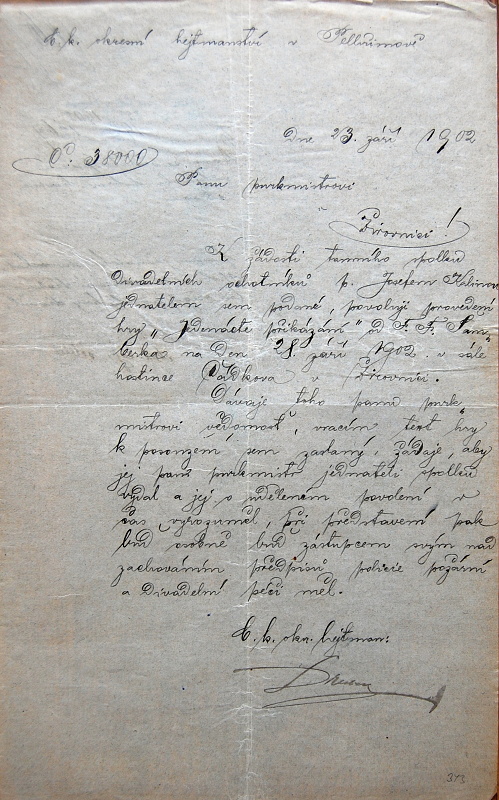 C. k. okresní hejtmanství v Pelhřimově
Dne 23. září 1902
Č. 38000
Panu purkmistrovi
v
Žirovnici!
K žádosti tamního spolku
divadelních ochotníků p. Josefem Kalinou
jednatelem sem podané, povoluji provedení
hry „Jedenácté přikázání" od F. F. Šam-
berka na den 28. září 1902 v sále
hostince Čádkova v Žirovnici.
Dávaje toho panu purk-
mistrovi vědomost, vracím text hry
k posouzení sem zaslaný, žádaje, aby
jej pan purkmistr jednateli spolku
vydal a jej o uděleném povolení v
čas vyrozuměl, při představení pak
buď osobně buď zástupcem svým nad
zachováním předpisů policie požární
a divadelní péči měl.
C. k. okr. hejtman:
313